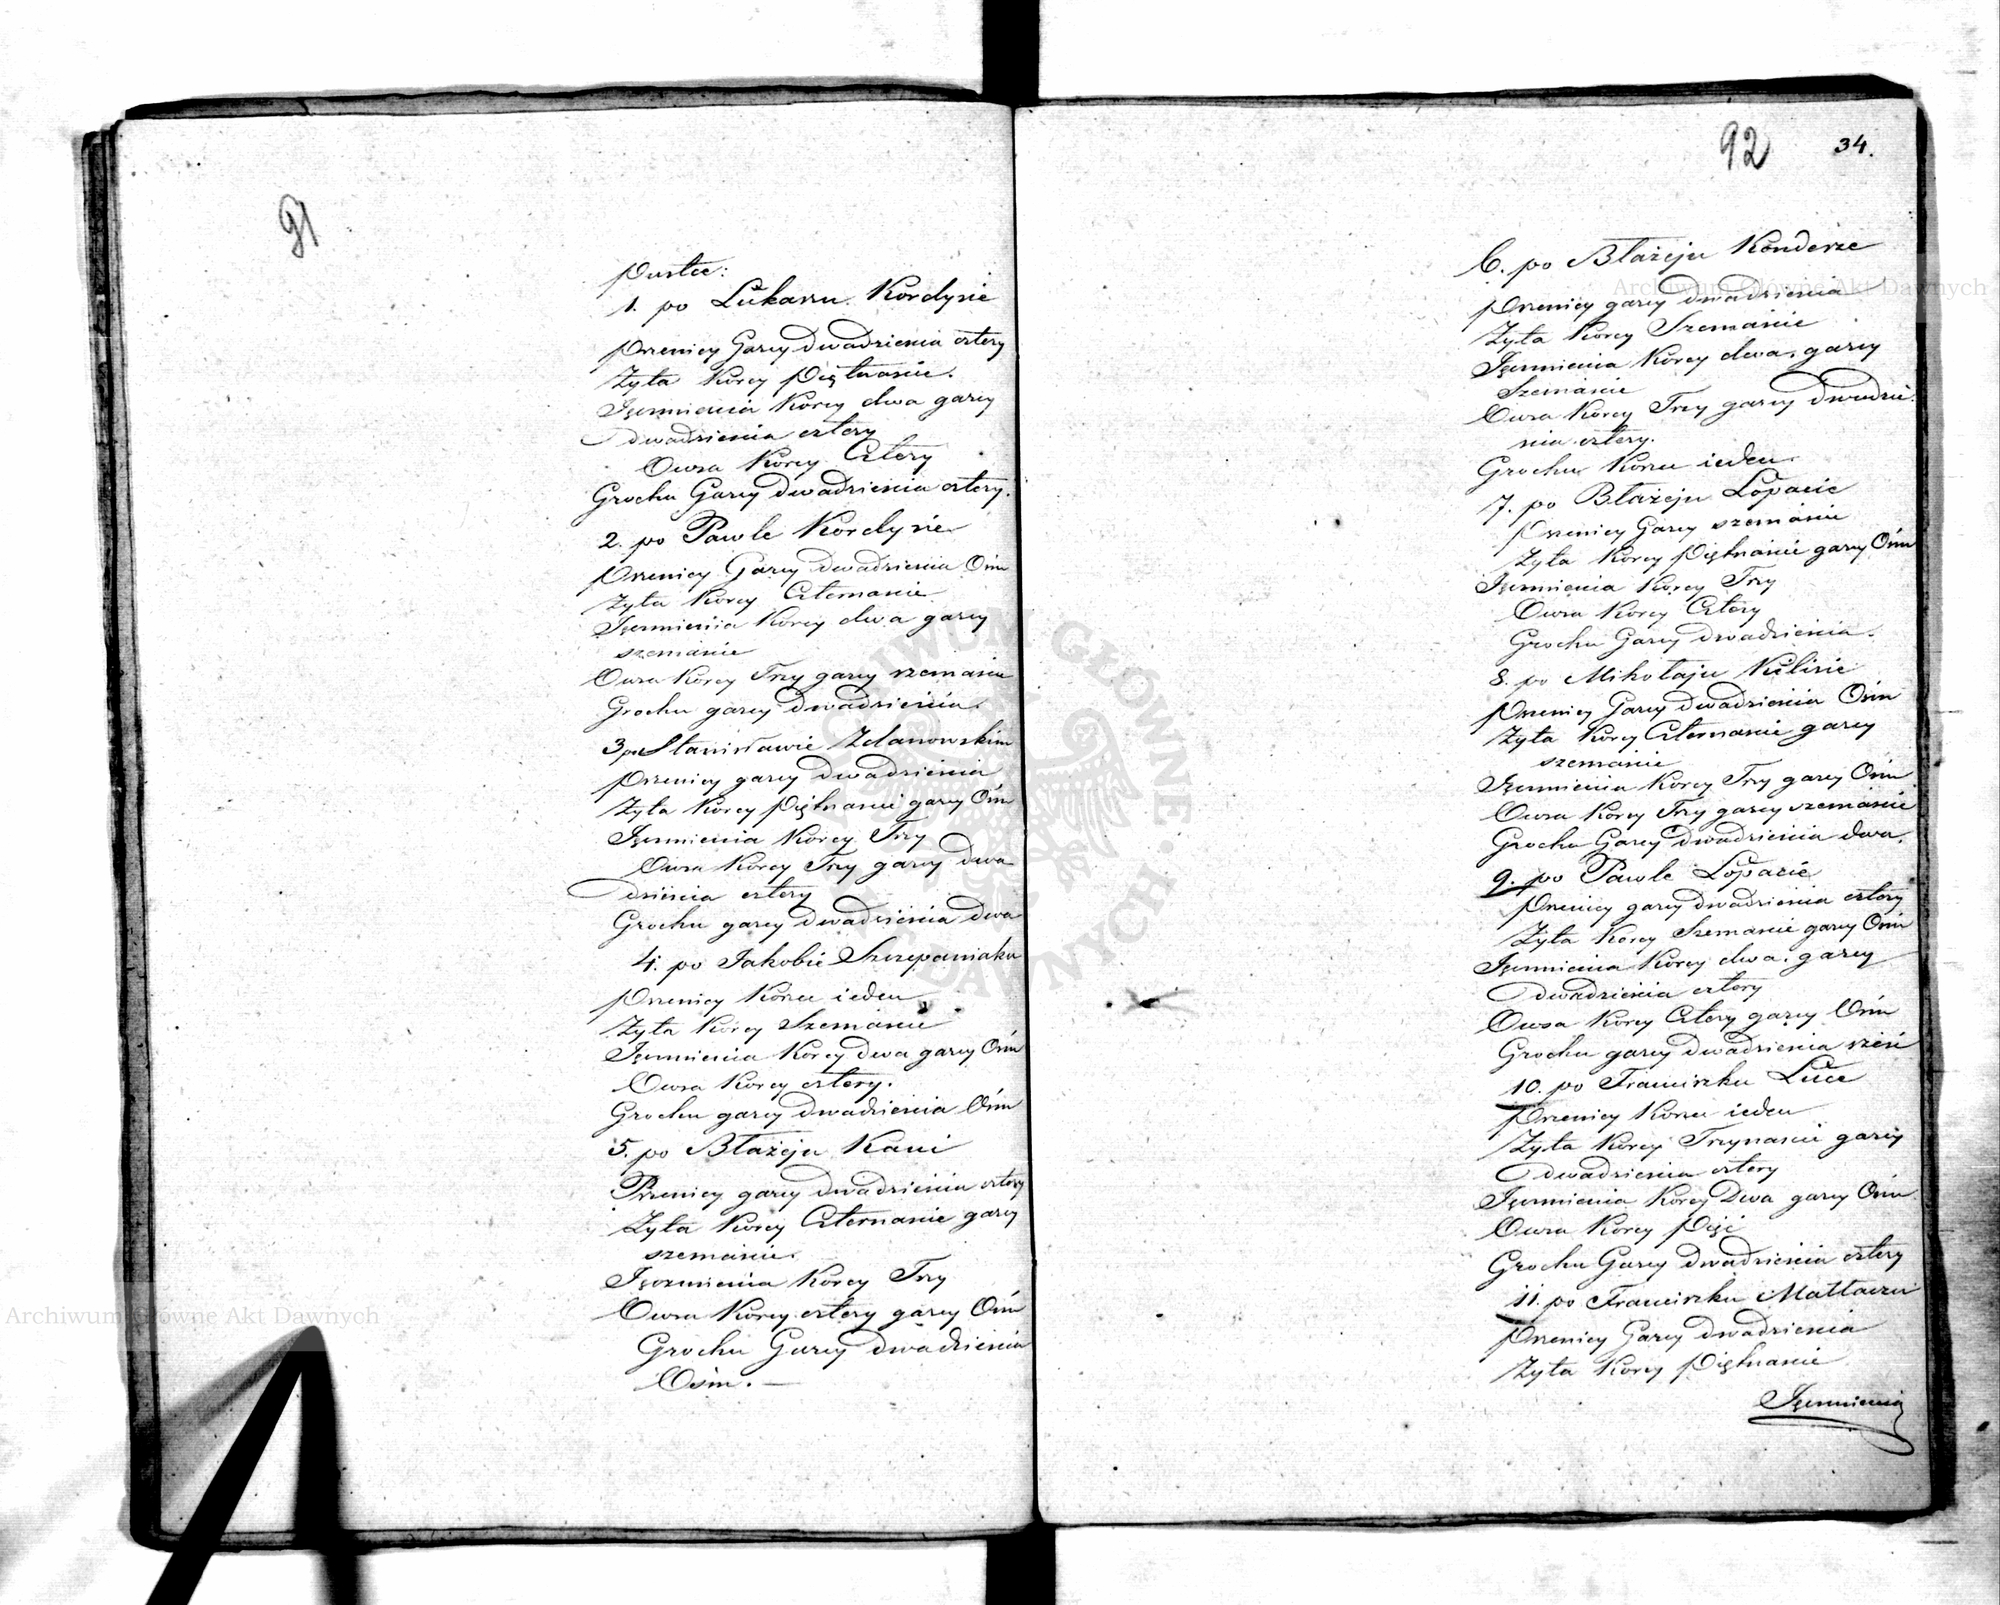 91
Pustce:
1. po Łukaszu Kordysie
Pszenicy Garcy dwadzieścia cztery
Żyta Korcy Piętnaście.
Jęczmienia Korcy dwa garcy
dwadzieścia cztery
Owsa Korcy Cztery
Grochu Garcy dwadzieścia cztery.
2. po Pawle Kordysie
Pszenicy Garcy dwadzieścia Ośm
Żyta Korcy Czternaście
Jęczmienia Korcy dwa garcy
szesnaście
Owsa Korcy Trzy garcy szesnaście
Grochu garcy dwadzieścia.
3 po Stanisławie Zdanowskim
Pszenicy garcy dwadzieścia
Żyta Korcy Piętnaście garcy Ośm
Jęczmienia Korcy Trzy
Owsa Korcy Trzy garcy dwa
dzieścia cztery
Grochu garcy dwadzieścia dwa
4. po Jakobie Szczepaniaku
Pszenicy Korzec ieden
Żyta Korcy Szesnaście
Jęczmienia Korcy dwa garcy Ośm
Owsa Korcy cztery.
Grochu garcy dwadzieścia Ośm
5. po Błażeju Kani
Pszenicy garcy dwadzieścia cztery
Żyta Korcy Czternaście garcy
szesnaście.
Jęczmienia Korcy Trzy
Owsa Korcy cztery garcy Ośm
Grochu Garcy dwadzieścia
Ośm. —
92 34.
6. po Błażeju Konderze
Pszenicy garcy dwadzieścia
Żyta Korcy Szesnaście
Jęczmienia Korcy dwa, garcy
Szesnaście
Owsa Korcy Trzy garcy dwadzie
ścia cztery.
Grochu Korzec ieden
7. po Błażeju Łopacie
Pszenicy Garcy szesnaście
Żyta Korcy Piętnaście garcy Ośm
Jęczmienia Korcy Trzy
Owsa Korcy Cztery
Grochu Garcy dwadzieścia.
8. po Mikołaju Kulisie
Pszenicy Garcy dwadzieścia Ośm
Żyta Korcy Czternaście garcy
szesnaście
Jęczmienia Korcy Trzy garcy Ośm
Owsa Korcy Trzy garcy szesnaście
Grochu Garcy dwadzieścia dwa.
9. po Pawle Łopacie
Pszenicy garcy dwadzieścia cztery
Żyta Korcy Szesnaście garcy Ośm
Jęczmienia Korcy dwa. garcy
dwadzieścia cztery
Owsa Korcy Cztery garcy Ośm
Grochu garcy dwadzieścia sześć
10. po Franciszku Luce
Pszenicy Korzec ieden
Żyta Korcy Trzynaście garcy
dwadzieścia cztery
Jęczmienia Korcy Dwa garcy Ośm
Owsa Korcy Pięć
Grochu Garcy dwadzieścia cztery
11. po Franciszku Matłaszu
Pszenicy Garcy dwadzieścia
Żyta Korcy Piętnaście
Jęczmienia